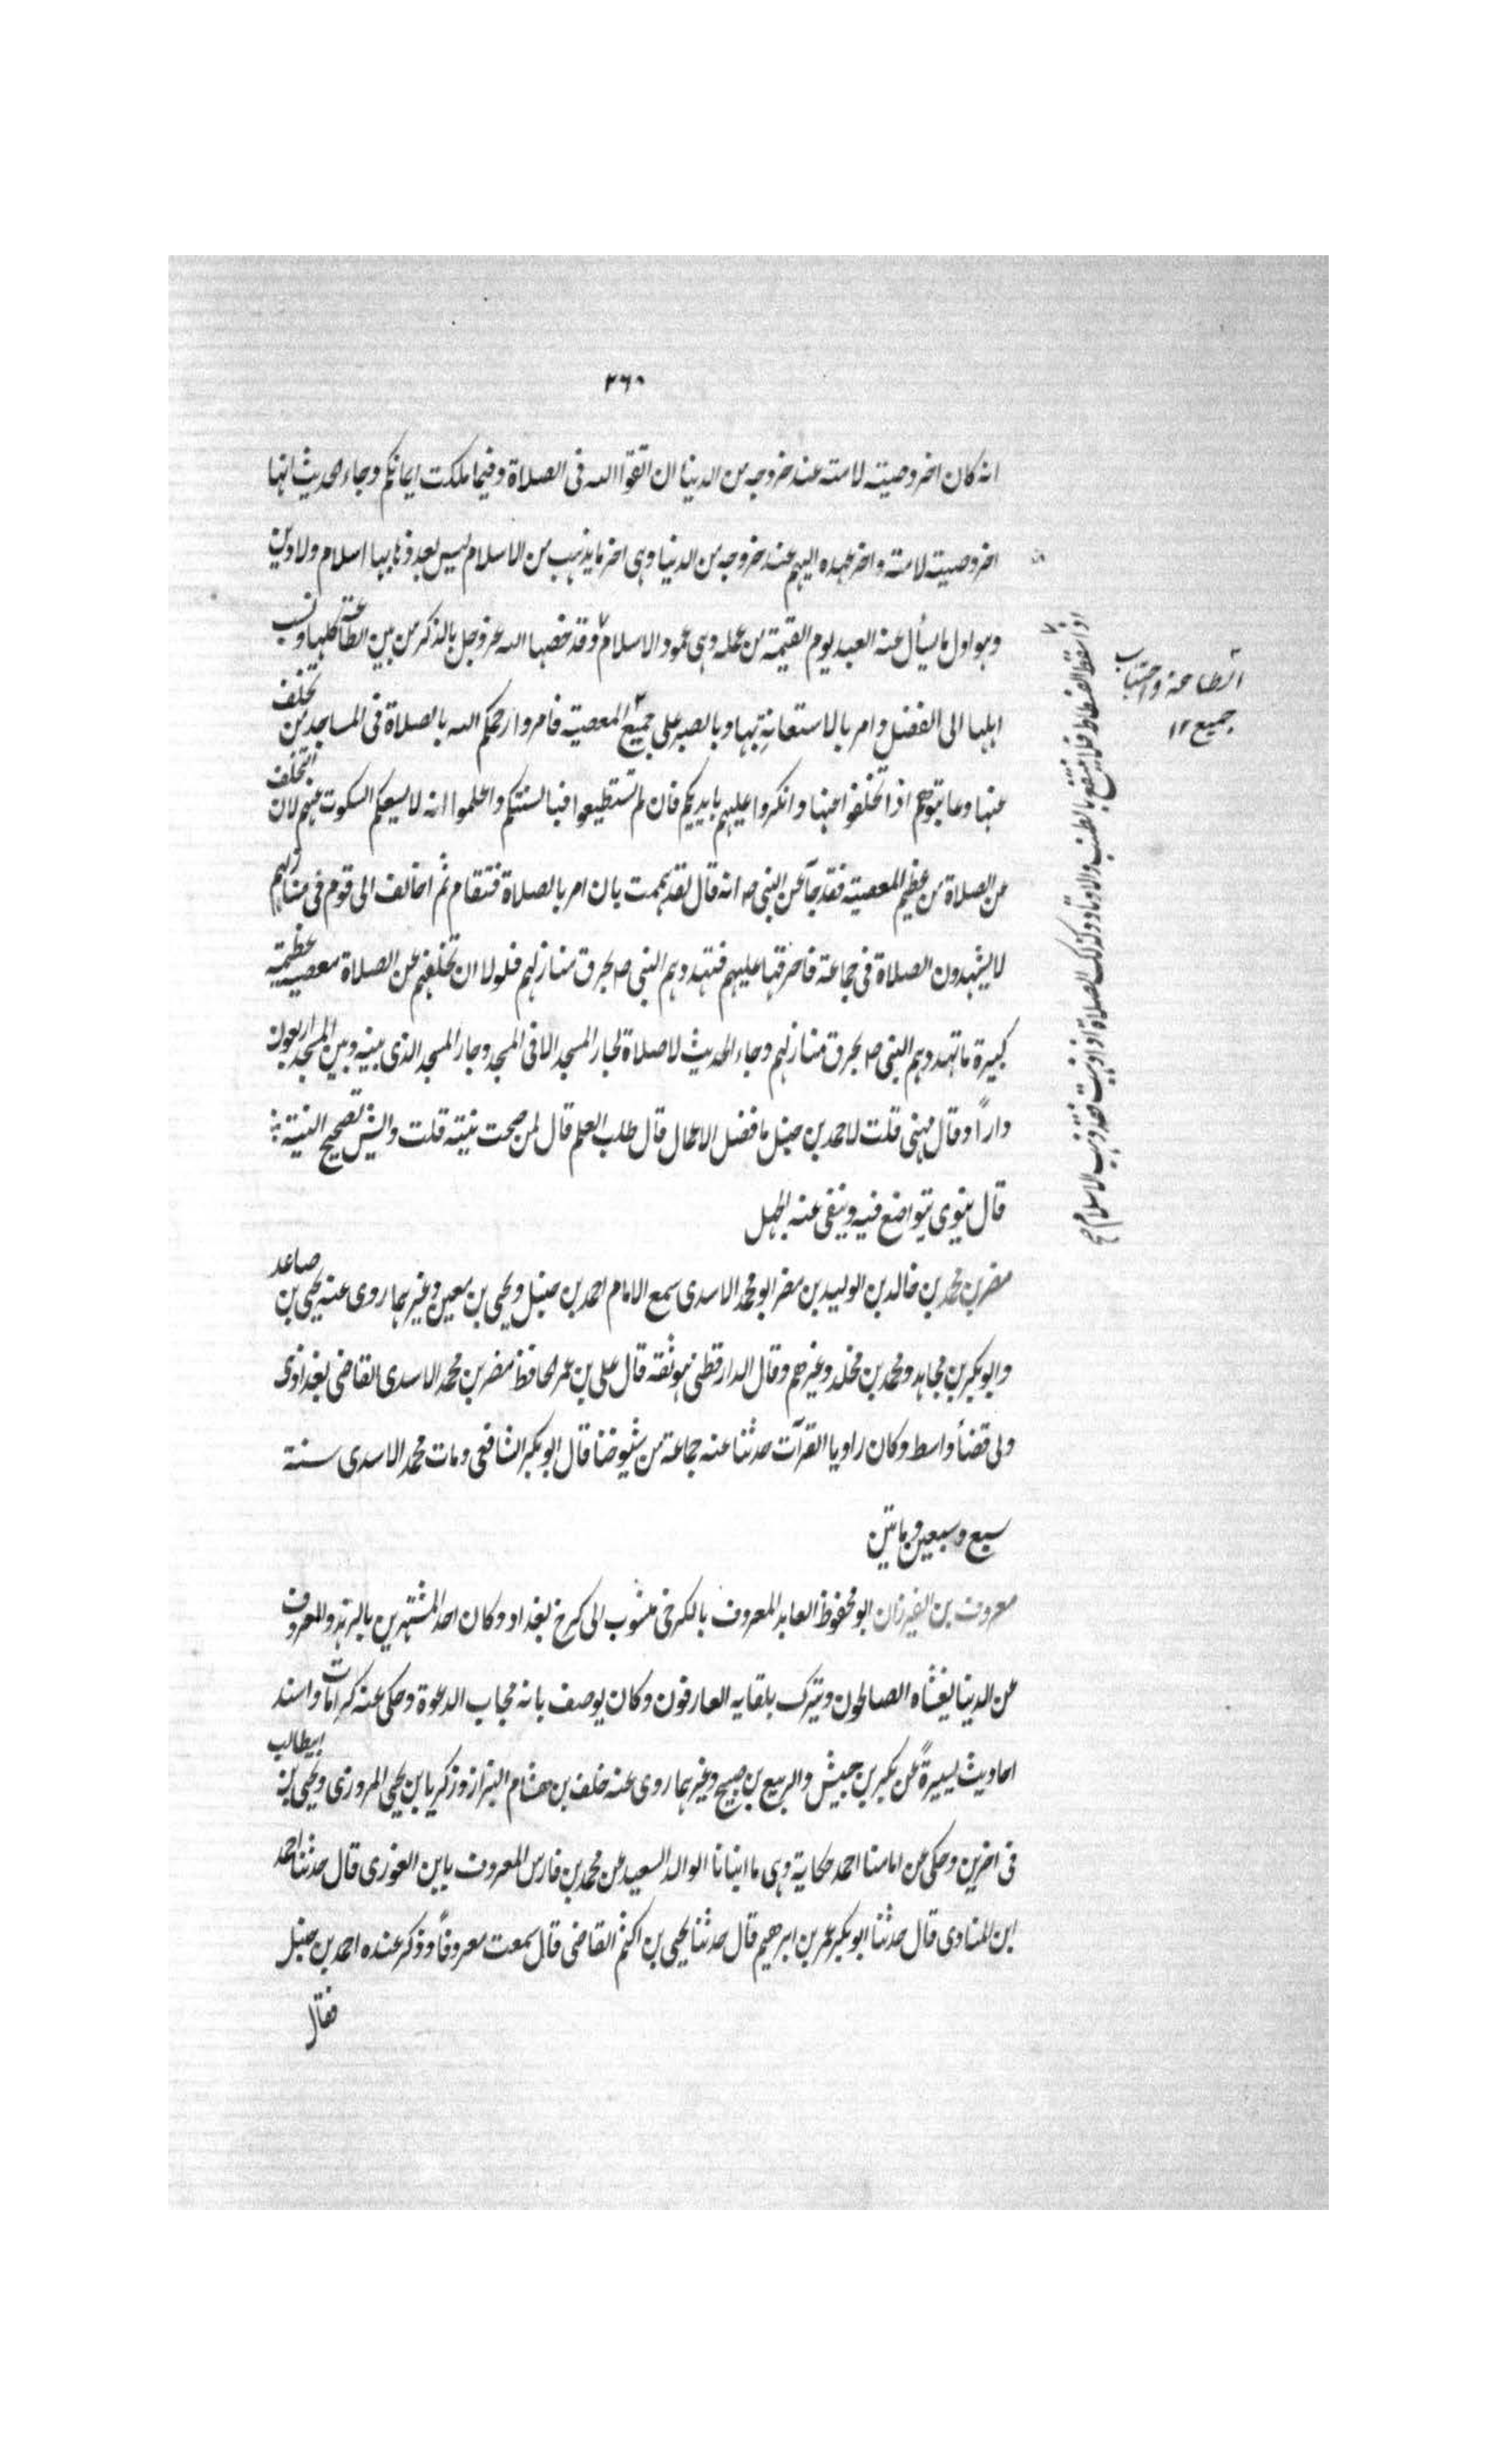 ٢٦٠
انه كان اخر وصيته لامته عند خروجه من الدنيا ان اتقوا الله فى الصلاة وفيما ملكت ايمانكم وجاء الحديث انها
اخر وصيته لامته واخر عهده اليهم عند خروجه من الدنيا وهى اخر ما يذهب من الاسلام ليس بعد ذهابها اسلام ولا دين
وهو اول ما يسأل عنه العبد يوم القيمة من عمله وهى عمود الاسلام وقد خصها الله عز وجل بالذكر من بين الطاعة كلها ونسب
اهلها الى الفضل وامر بالاستعانة بها وبالصبر على جميع المعصية فامروا رحمكم الله بالصلاة فى المساجد من تخلف
عنها وعاتبوهم اذا تخلفوا عنها وانكروا عليهم بايديكم فان لم تستطيعوا فبالسنتكم واعلموا انه لا يسعكم السكوت عنهم لان التخلف
عن الصلاة من عظيم المعصية فقد جآ عن النبى ص انه قال لقد هممت بان امر بالصلاة فتقام ثم اخالف الى قوم فى منازلهم
لا يشهدون الصلاة فى جماعة فاحرقها عليهم فتهددهم النبى ص بحرق منازلهم فلولا ان تخلفهم عن الصلاة معصية عظيمة
كبيرة ما تهددهم النبى ص بحرق منازلهم وجاء الحديث لا صلاة لجار المسجد الا فى المسجد وجار المسجد الذى بينه وبين المسجد اربعون
داراً وقال مهنى قلت لاحمد بن حنبل ما فضل الاعمال قال طلب العلم قال لمن صحت نيته قلت وايش تصحيح النية
قال ينوى يتواضع فيه وينفى عنه الجهل
مضر بن محمد بن خالد بن الوليد بن مضر ابو محمد الاسدى سمع الامام احمد بن حنبل ويحيى بن معين وغيرهما روى عنه يحيى بن صاعد
وابو بكر بن مجاهد ومحمد بن مخلد وغيرهم وقال الدارقطنى هو ثقة قال على بن عمر الحافظ مضر بن محمد الاسدى القاضى بغدادى
ولى قضأ واسط وكان راويا القرآت حدثنا عنه جماعة من شيوخنا قال ابو بكر الشافعى ومات محمد الاسدى سنة
سبع وسبعين وماتين
معروف بن الفيرزان ابو محفوظ العابد المعروف بالكرخى منسوب الى كرخ بغداد وكان احد المشتهرين بالزهد والمعزوف
عن الدينا يغشاه الصالحون ويتبرك بلقايه العارفون وكان يوصف بانه مجاب الدعوة وحكى عنه كرامات واسند
احاديث يسيرةً عن بكر بن حبيش والربيع بن صبيح وغيرهما روى عنه خلف بن هشام البزاز وزكريا بن يحيى المروزى ويحيى بن ابيطالب
فى اخرين وحكى عن امامنا احمد حكاية وهى ما انبانا الوالد السعيد عن محمد بن فارس المعروف بابن الغورى قال حدثنا احمد
ابن المنادى قال حدثنا ابو بكر عمر بن ابرهيم قال حدثنا يحيى بن اكثم القاضى قال سمعت معروفاً وذكر عنده احمد بن حنبل
فقال
اذا سقط الفسطاط فلا ينتفع بالطنب والاوتاد وكذلك الصلاة اذا ذهبت فقد ذهب الاسلام صح
الطاعة واجتناب
جميع ١٢